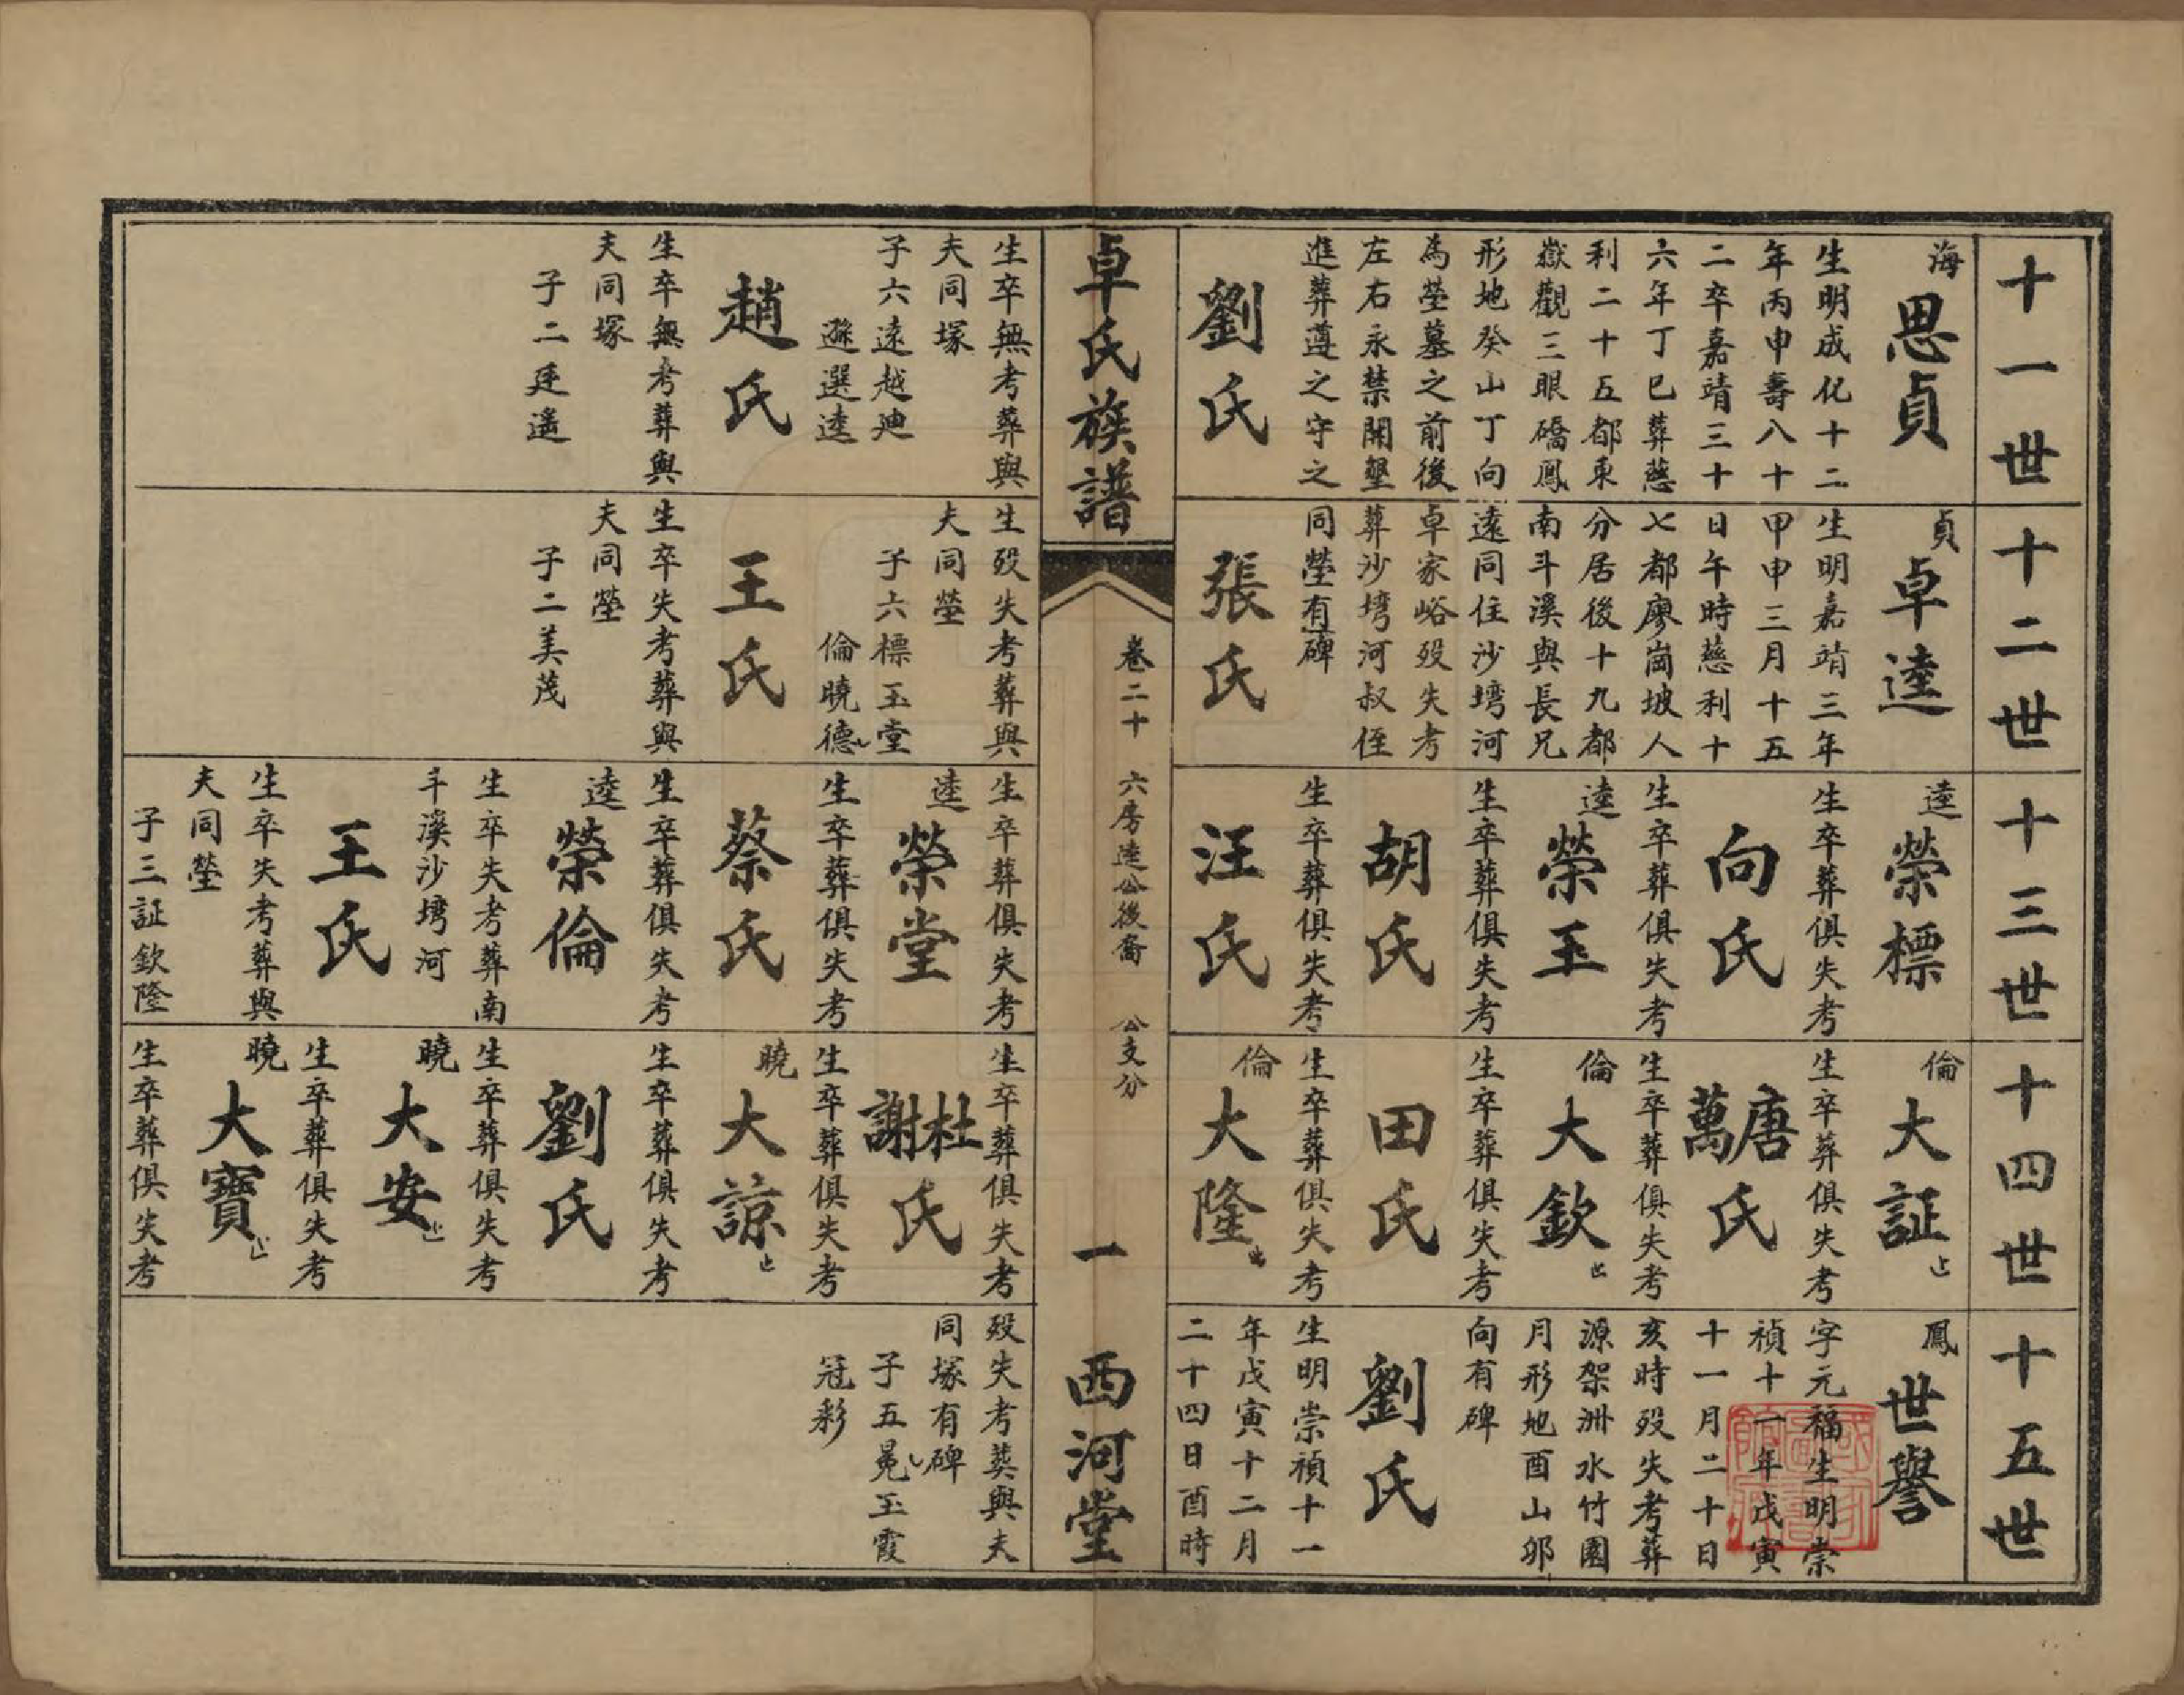 十一世
海
思貞
生明成化十二
年丙申壽八十
二卒嘉靖三十
六年丁巳葬慈
利二十五都東
嶽觀三眼礄鳳
形地癸山丁向
為塋墓之前後
左右永禁開墾
進葬遵之守之
劉氏
生卒無考葬與
夫同塚
子六逺越廸
遜選逵
趙氏
生卒無考葬與
夫同塚
子二廷遙
十二世
貞
卓逵
生明嘉靖三年
甲申三月十五
日午時慈利十
七都廖崗坡人
分居後十九都
南斗溪與長兄
逺同住沙塆河
卓家峪殁失考
葬沙塆河叔侄
同塋有碑
張氏
生殁失考葬與
夫同塋
子六標玉堂
倫曉德
王氏
生卒失考葬與
夫同塋
子二美茂
十三世
逵
榮標
生卒葬俱失考
向氏
生卒葬俱失考
逵
榮玉
生卒葬俱失考
胡氏
生卒葬俱失考
汪氏
生卒葬俱失考
逵
榮堂
生卒葬俱失考
蔡氏
生卒葬俱失考
逵
榮倫
生卒失考葬南
斗溪沙塆河
王氏
生卒失考葬與
夫同塋
子三証欽隆
十四世
倫
大証止
生卒葬俱失考
唐萬氏
生卒葬俱失考
倫
大欽止
生卒葬俱失考
田氏
生卒葬俱失考
倫
大隆止
生卒葬俱失考
杜謝氏
生卒葬俱失考
曉
大諒止
生卒葬俱失考
劉氏
生卒葬俱失考
曉
大安止
生卒葬俱失考
曉
大寶止
生卒葬俱失考
十五世
鳳
世譽
字元福生明崇
禎十一年戊寅
十一月二十日
亥時殁失考葬
源架洲水竹園
月形地酉山卯
向有碑
劉氏
生明崇禎十一
年戊寅十二月
二十四日酉時
殁失考葬與夫
同塚有碑
子五冕玉霞
冠彩
卓氏族譜
卷二十 六房逵公後裔 公支分
一
西河堂